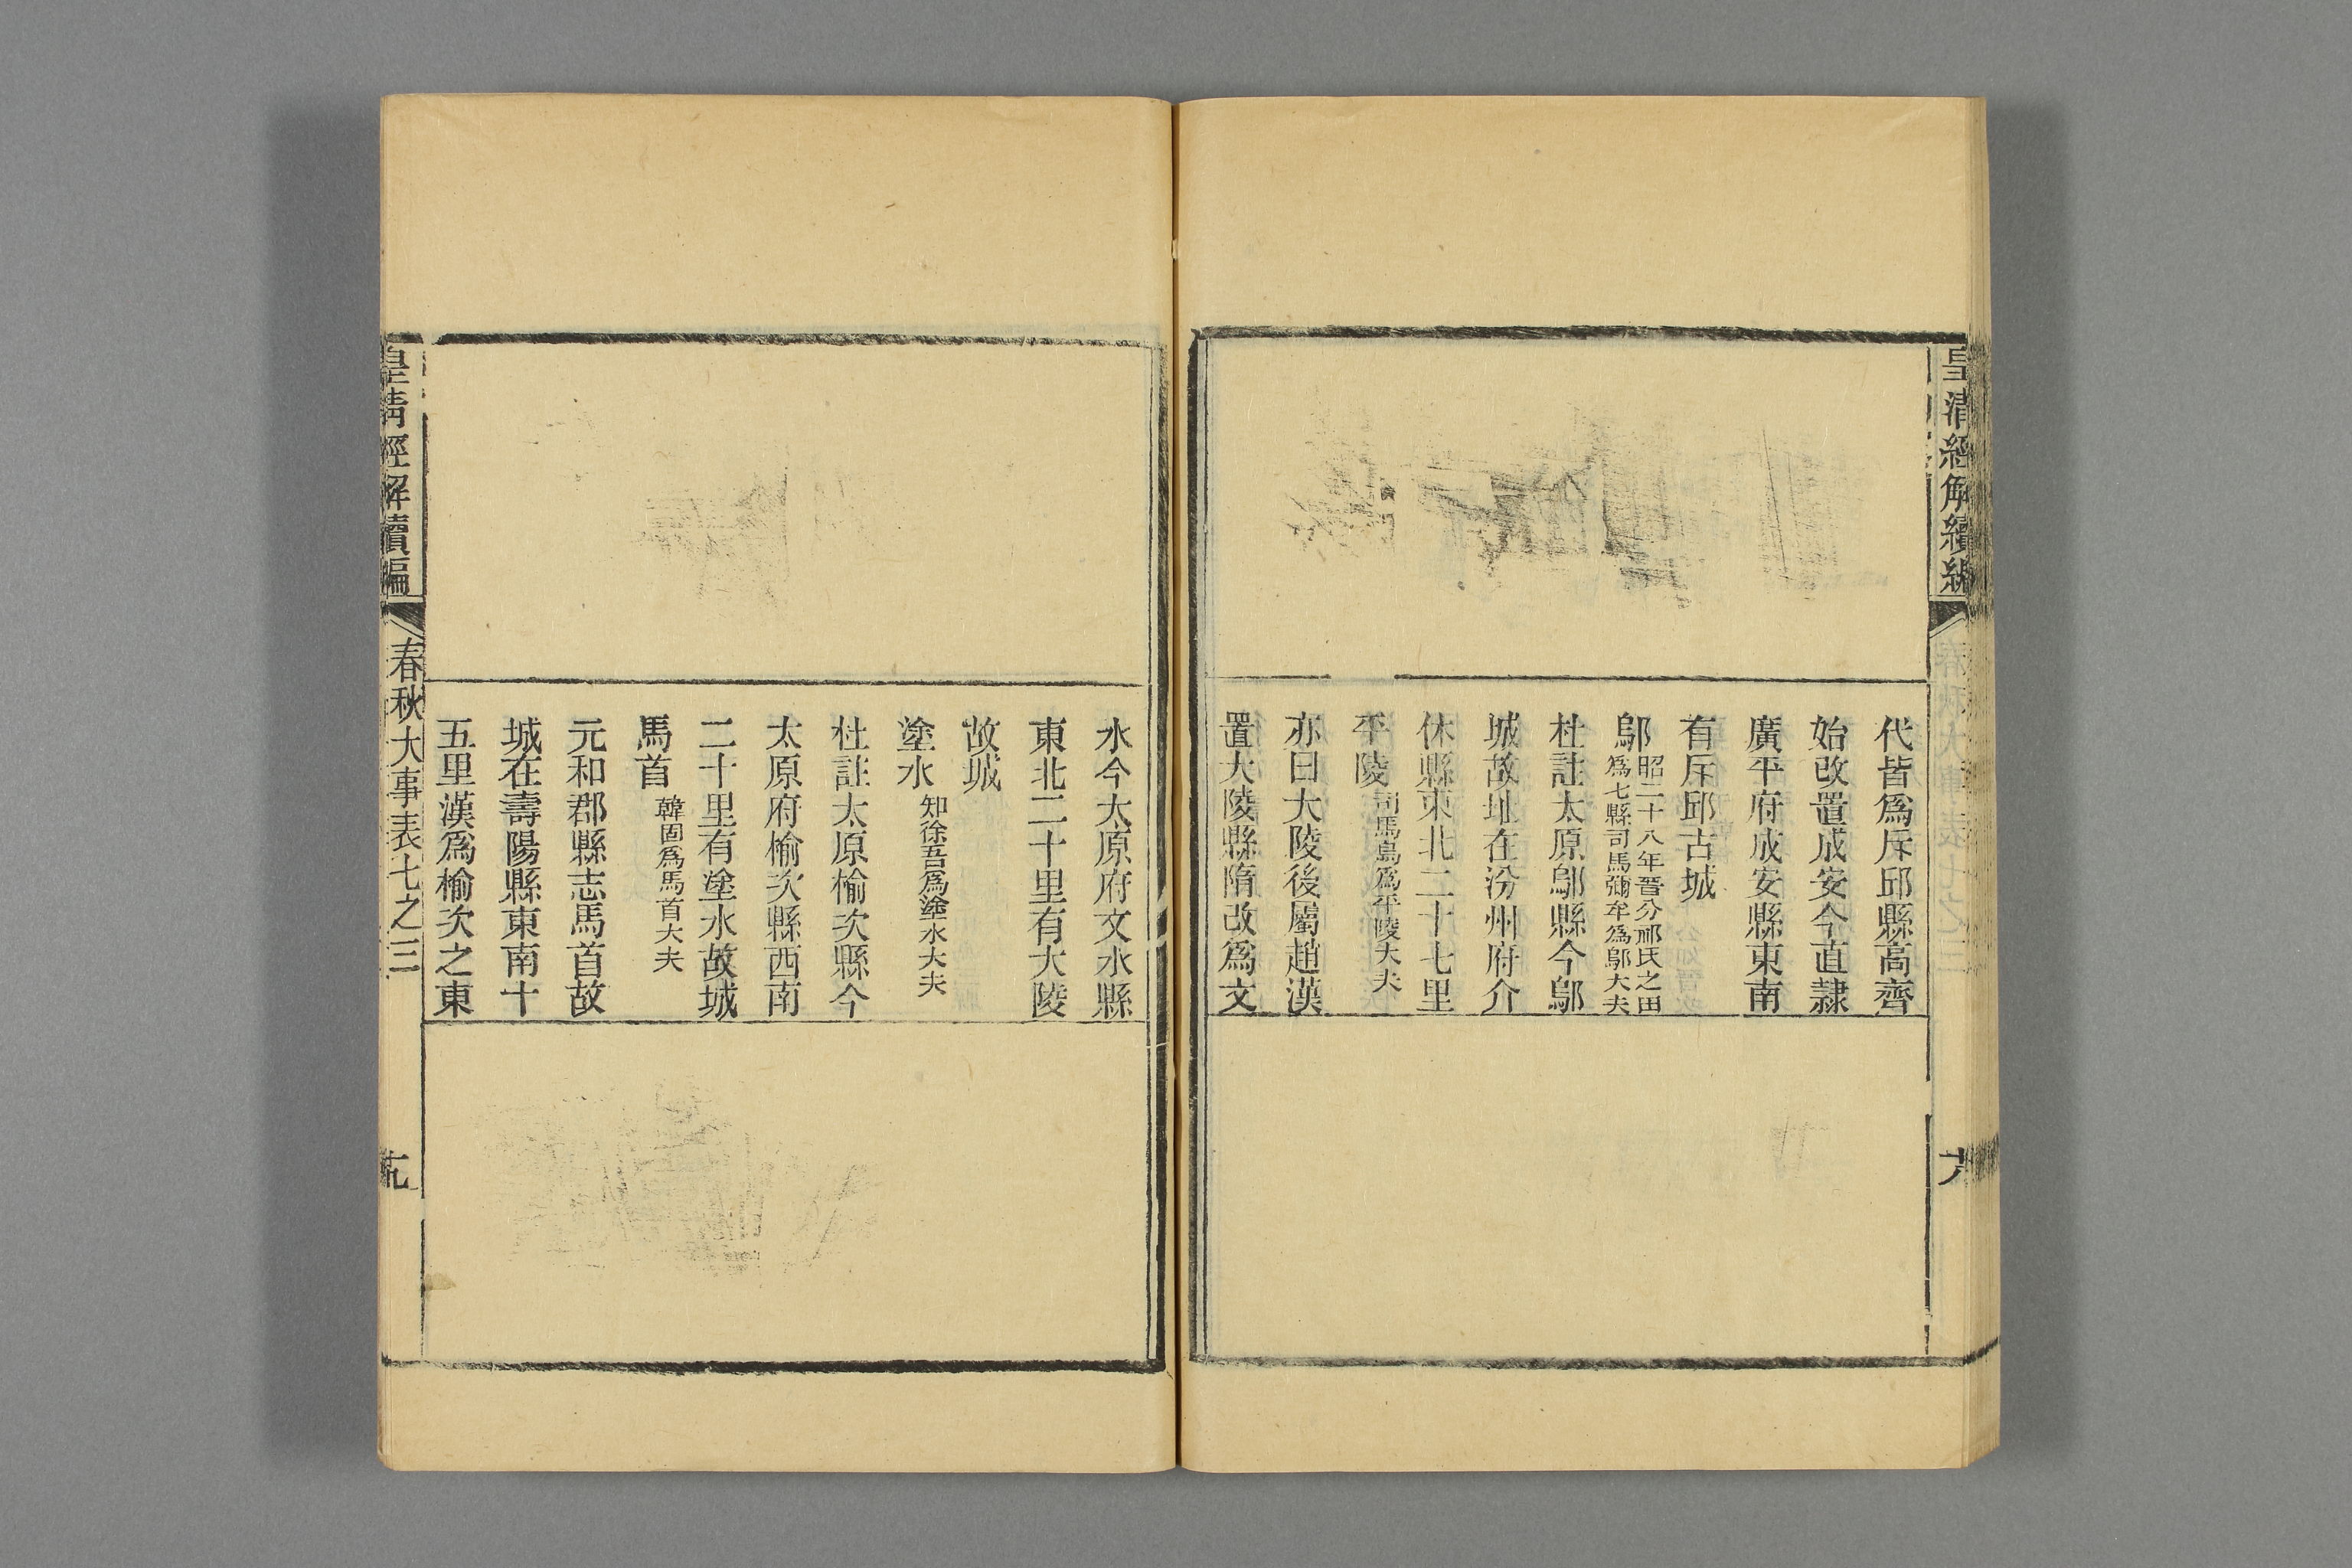 皇清經解續編
代皆爲斥邱縣高齊
始改置成安今直隷
廣平府成安縣東南
有斥邱古城
鄔昭二十八年晉分祁氏之田爲七縣司馬彌牟爲鄔大夫
杜註太原鄔縣今鄔
城故址在汾州府介
休縣東北二十七里
平陵司馬烏爲平陵大夫
亦曰大陵後屬趙漢
置大陵縣隋改爲文
水今太原府文水縣
東北二十里有大陵
故城
塗水知徐吾爲塗水大夫
杜註太原榆次縣今
太原府榆次縣西南
二十里有塗水故城
馬首韓固爲馬首大夫
元和郡縣志馬首故
城在壽陽縣東南十
五里漢爲榆次之東
皇清經解續編
春秋大事表七之三